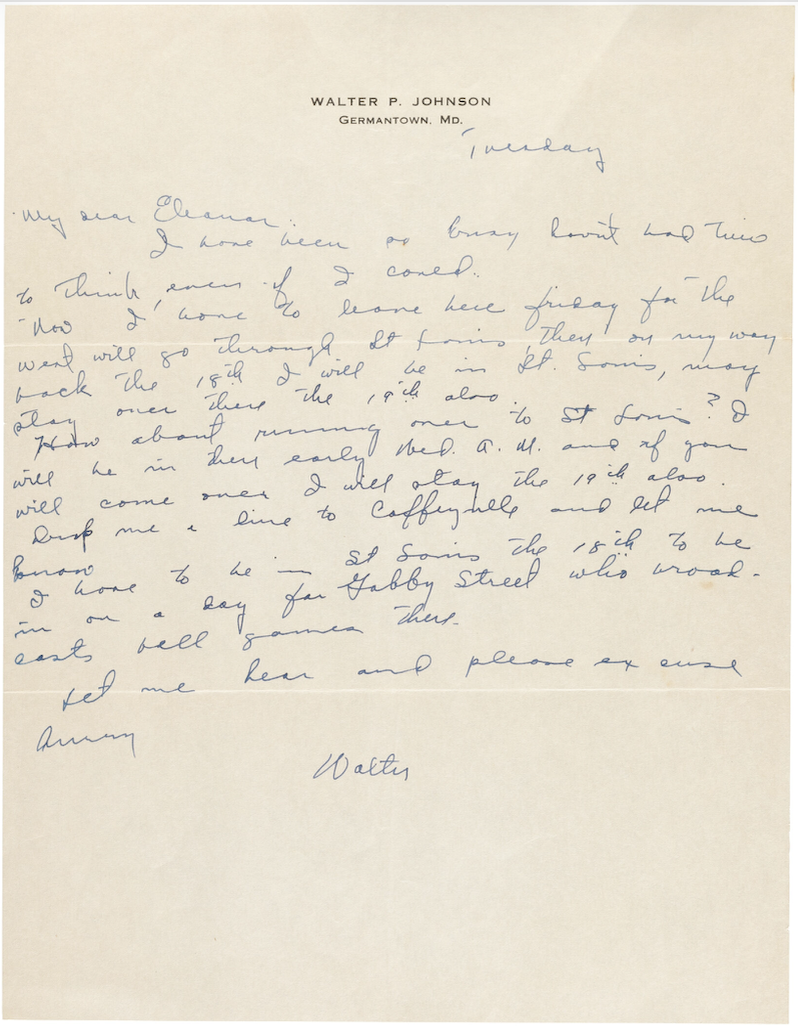 WALTER P. JOHNSON
GERMANTOWN, MD.
Tuesday
My dear Eleanor:
I have been so busy havn't had time
to think, even if I could.
Now I have to leave here friday for the
west will go through St Louis, then on my way
back the 18th I will be in St. Louis, may
stay over there the 19th also.
How about running over to St Louis? I
will be in there early Wed. A. M. and if you
will come over I will stay the 19th also.
Drop me a line to Coffeyville and let me
know
I have to be in St Louis the 18th to be
in on a day for Gabby Street who broad-
casts ball games there.
Let me hear and please excuse
hurry
Walter